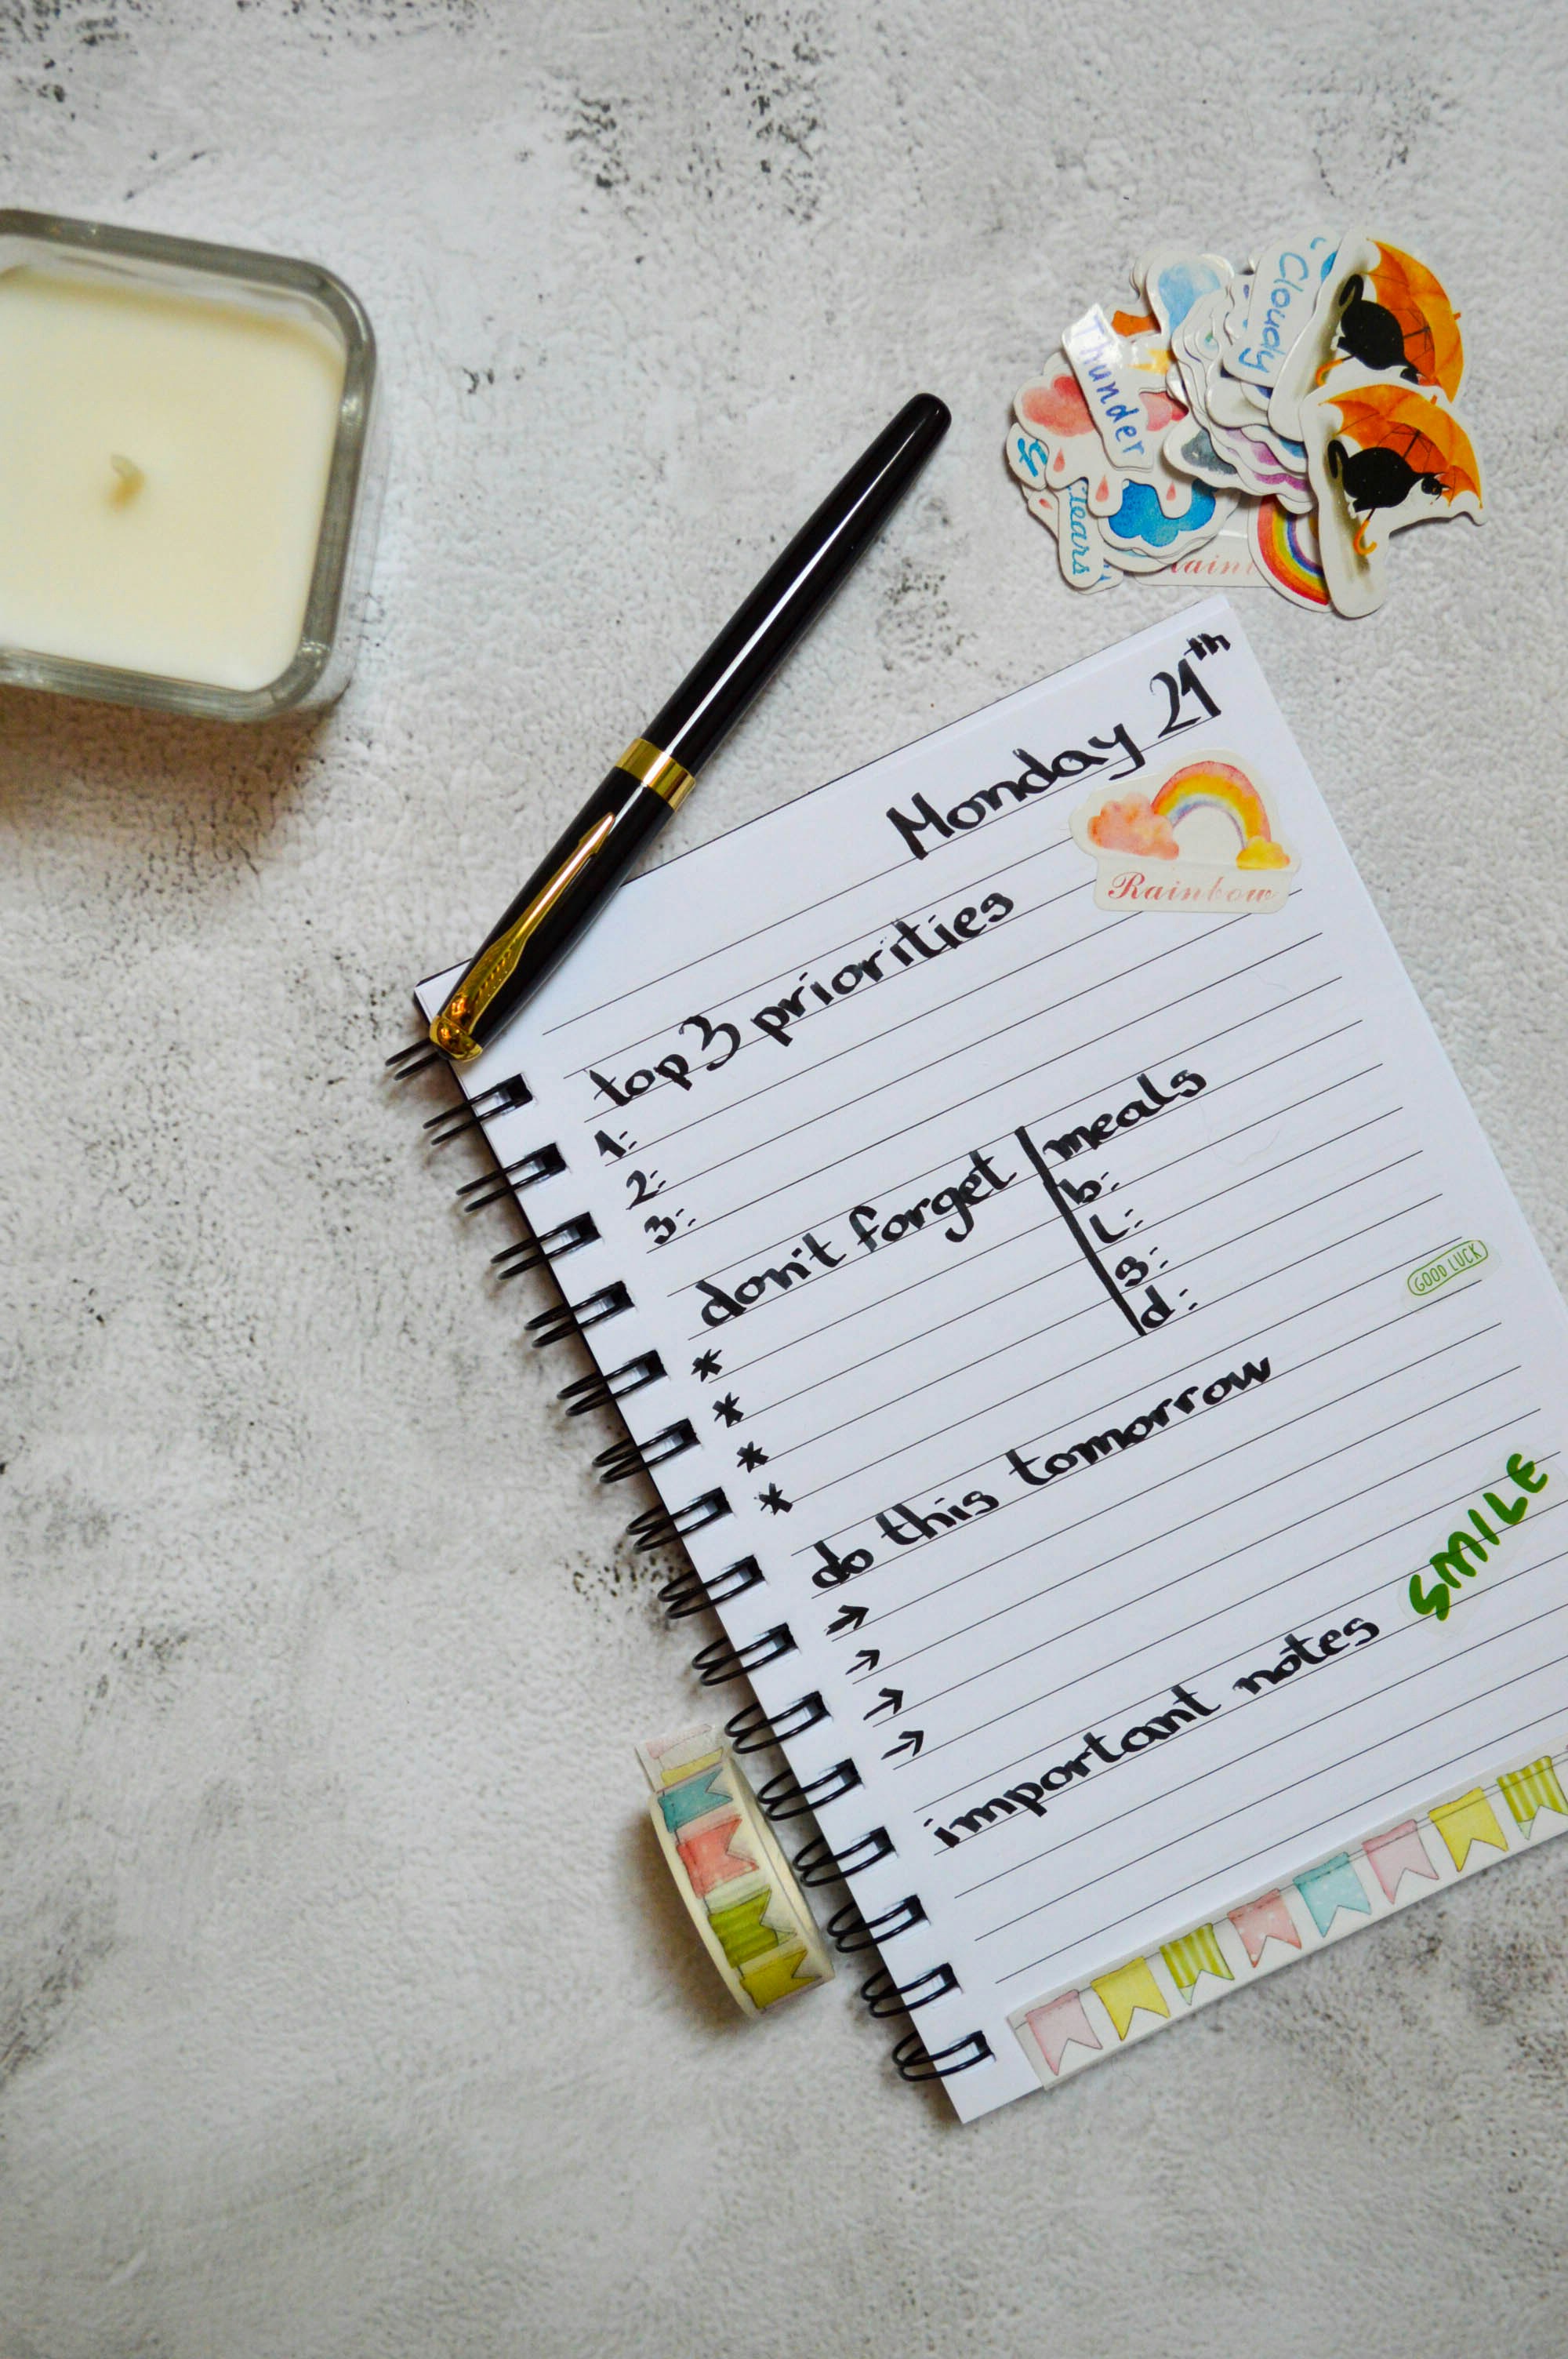 Cloudy
Thunder
Tears
Monday 21th
Rainbow
top 3 priorities
1:
2:
3:
don't forget
*
*
*
*
meals
b:
L:
s:
d:
GOOD LUCK
do this tomorrow
→
→
→
→
SMILE
important notes